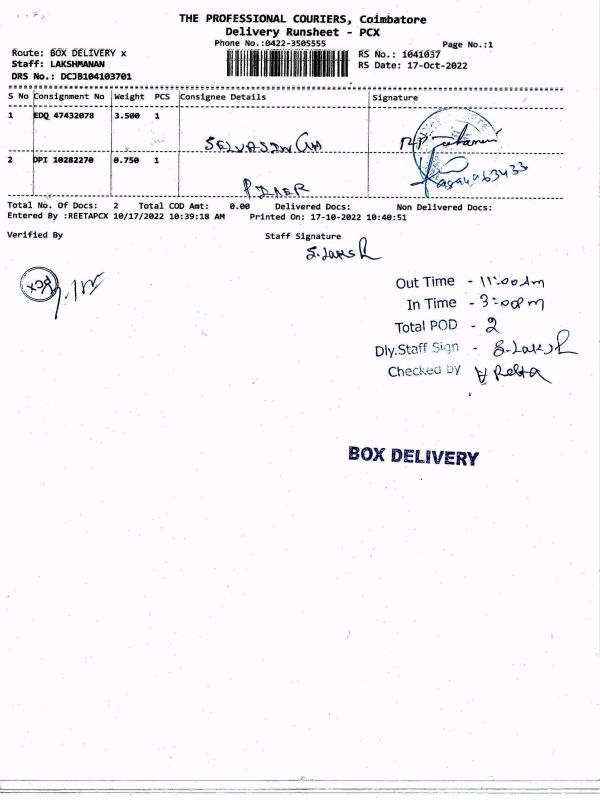 THE PROFESSIONAL COURIERS, Coimbatore
Delivery Runsheet - PCX
Phone No.:0422-3505555
Page No.:1
Route: BOX DELIVERY x
RS No.: 1041037
Staff: LAKSHMANAN
RS Date: 17-Oct-2022
DRS No.: DCJB104103701
S No Consignment No Weight PCS Consignee Details Signature
1 EDQ 47432078 3.500 1
2 DPI 10282270 0.750 1
Total No. Of Docs: 2 Total COD Amt: 0.00 Delivered Docs: Non Delivered Docs:
Entered By :REETAPCX 10/17/2022 10:39:18 AM Printed On: 17-10-2022 10:40:51
Verified By
Staff Signature
S.Laksh
PCX
Out Time - 11:00 Am
In Time - 3:00 pm
Total POD - 2
Dly.Staff Sign - S.Laksh
Checked by
BOX DELIVERY